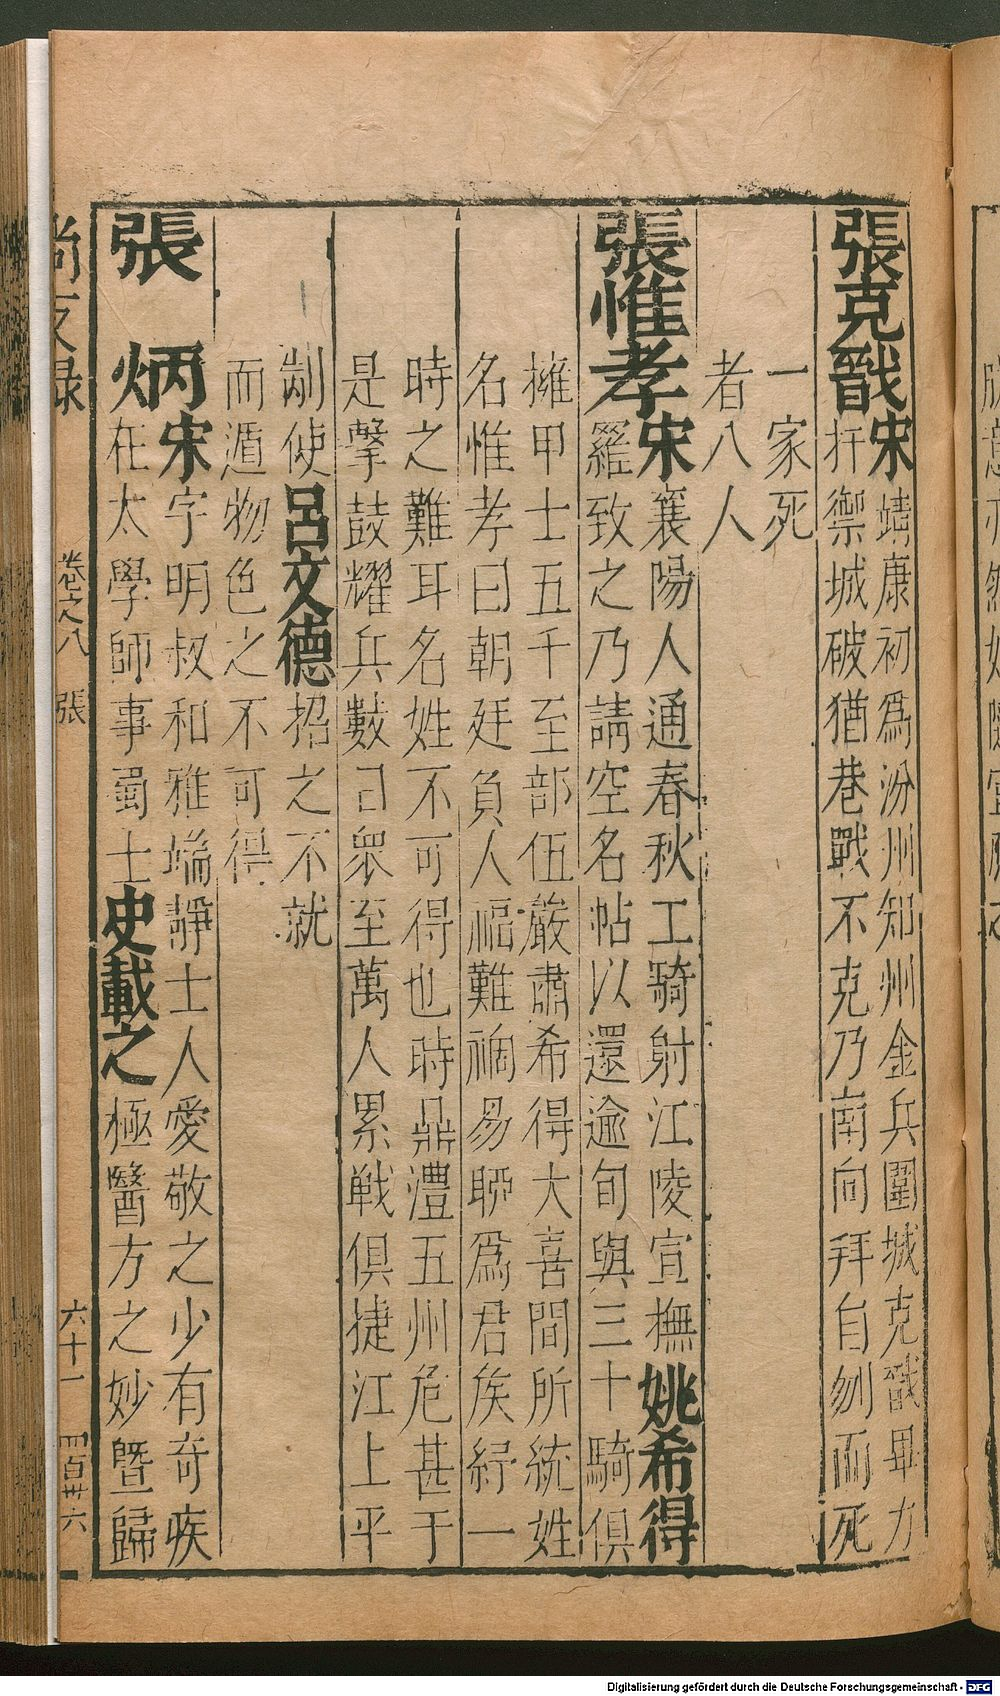 張克戩宋靖康初爲汾州知州金兵圍城克戩畢力
扞禦城破猶巷戰不克乃南向拜自刎而死
一家死
者八人
張惟孝宋襄陽人通春秋工騎射江陵宣撫姚希得
羅致之乃請空名帖以還逾旬與三十騎俱
擁甲士五千至部伍嚴肅希得大喜問所統姓
名惟孝曰朝廷負人福難禍易聊爲君侯紓一
時之難耳名姓不可得也時鼎澧五州危甚于
是擊鼓耀兵數日衆至萬人累戦俱捷江上平
制使呂文德招之不就
而遁物色之不可得
張炳宋字明叔和雅端靜士人愛敬之少有奇疾
在太學師事蜀士史載之極醫方之妙曁歸
尚友録 卷之八 張 六十一 四百卅六
Digitalisierung gefördert durch die Deutsche Forschungsgemeinschaft - DFG